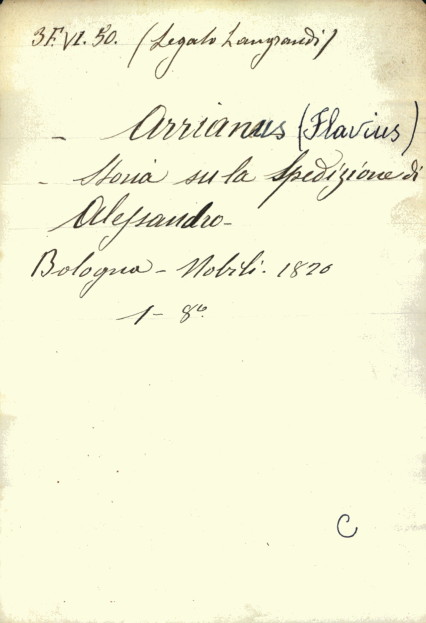 3F.VI.50. (Legato Langrandi)
- Arrianus (Flavius)
- Storia su la Spedizione di
Alessandro-
Bologna - Nobili. 1820
1- 8º
C